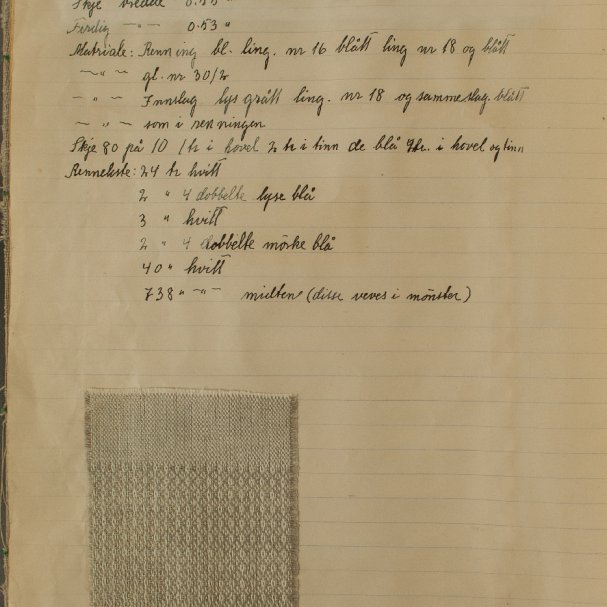 Skje bredde 0.55 "
Færdig ~"~ 0.53 "
Matriale: Renning bl. ling. nr 16 blått ling nr 18 og blått
~"~ gl. nr 30/2
~"~ Innslag lys grått ling. nr 18 og samme slag blått
~"~ som i renningen
Skje 80 på 10 1 tr i hovel 2 tr i tinn de blå 4 tr. i hovel og tinn
Renneliste: 24 tr hvitt
2 " 4 dobbelte lyse blå
3 " hvitt
2 " 4 dobbelte mörke blå
40 " hvitt
738 " ~"~ midten (disse veves i mönster)